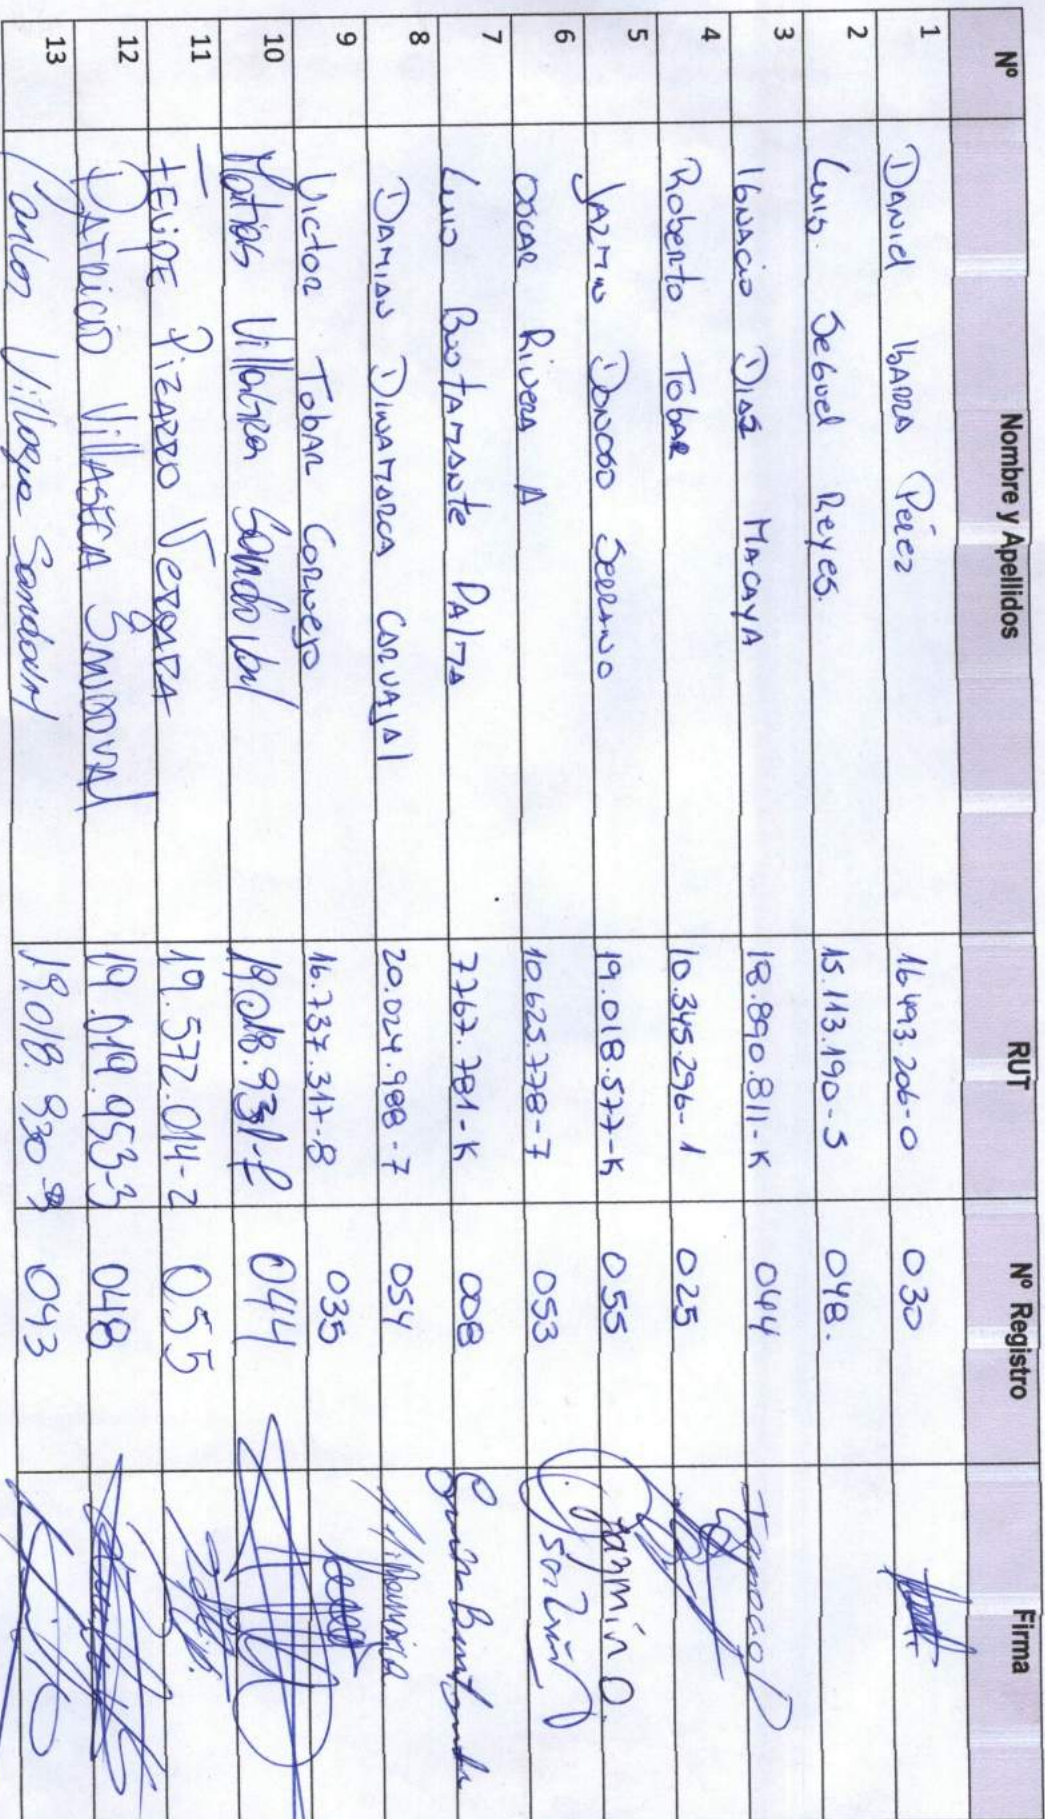 Nº Nombre y Apellidos RUT Nº Registro Firma
1 Daniel Ibarra Pérez 16.493.206-0 030
2 Luis Seguel Reyes. 15.113.190-5 048.
3 Ignacio Dias Macaya 18.890.811-K 044 Ignacio
4 Roberto Tobar 10.345.296-1 025
5 Jazmin Donoso Serrano 19.018.577-K 055 Jazmín D.
6 Oscar Rivera A 10.625.778-7 053
7 Luis Bustamante Palma 7767.781-K 008
8 Damian Dinamarca Carvajal 20.024.988-7 054
9 Victor Tobar Cornejo 16.737.317-8 035
10 Matias Villalobos Sandoval 044
11 Felipe Pizarro Vergara 19.572.014-2 055
12 Patricio Villaseca Sandoval 19.019.953-3 048
13 Carlos Villagra Sandoval 19.018.930-9 043